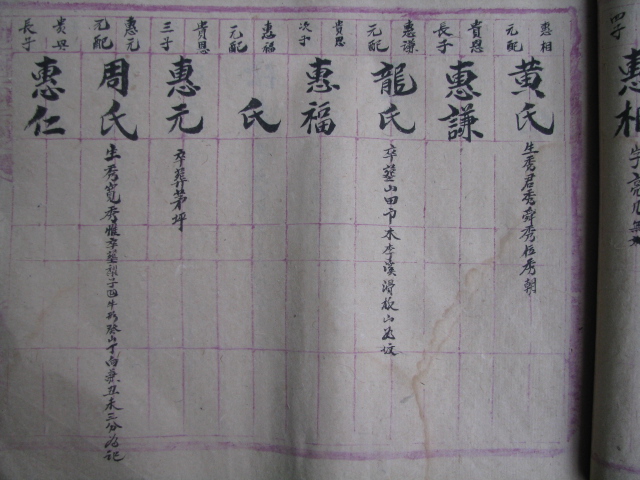 四子
惠相
惠相元配
黄氏
生秀君秀舜秀位秀朝
貴恩長子
惠謙
惠謙元配
龍氏
卒塟山田卩木李溪滑板山為坟
貴恩次子
惠福
惠福元配
氏
貴恩三子
惠元
卒葬茅坪
惠元元配
周氏
生秀寬秀雅卒塟犁子丘牛形癸山丁向兼丑未三分為記
貴興長子
惠仁